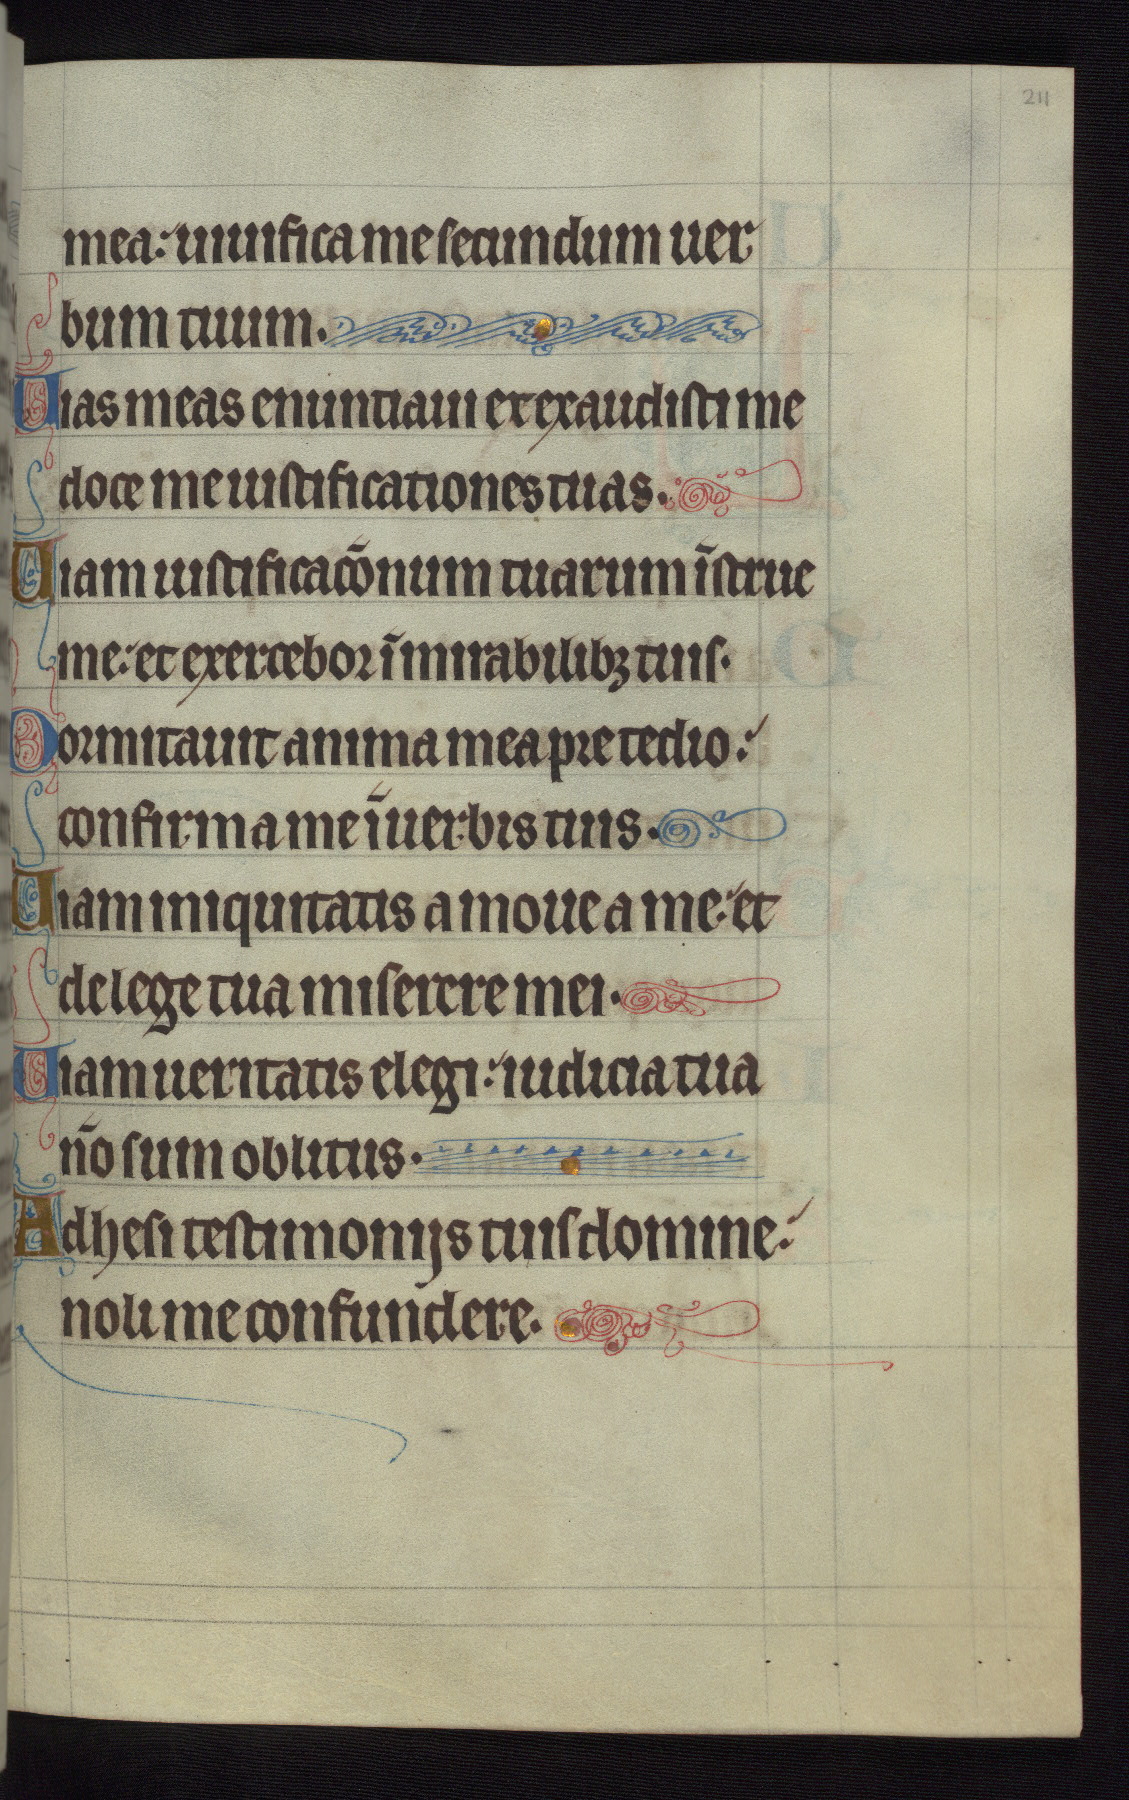 211
mea: uiuifica me secundum uer
bum tuum.
Uias meas enuntiaui et exaudisti me
doce me iustificationes tuas.
Uiam iustificacõnum tuarum ĩstrue
me: et exercebor ĩ mirabilibꝫ tuis.
Dormitauit anima mea pre tedio:
confirma me ĩ uerbis tuis.
Uiam iniquitatis amoue a me: et
de lege tua miserere mei.
Uiam ueritatis elegi: iudicia tua
ño sum oblitus.
Adhesi testimonijs tuis domine:
noli me confundere.